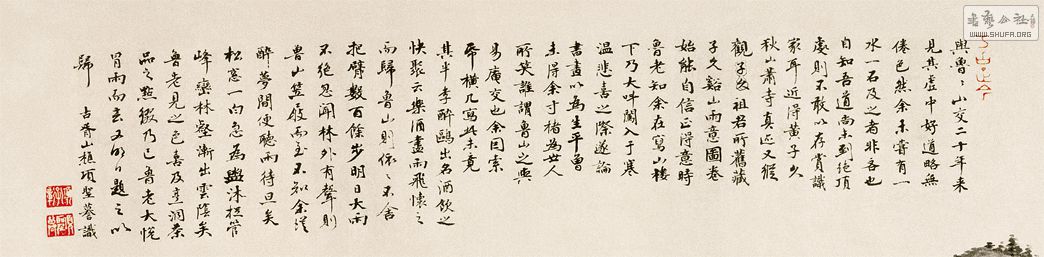 與魯〻山交二十年来
見其虚中好道略無
倦色然余未嘗有一
水一石及之者非吝也
自知吾道尚未到绝頂
處則不敢以存賞識
家耳近得黄子久
秋山蕭寺真迹又從
觀子安祖君所舊藏
子久谿山雨意圖卷
始能自信正得意時
魯老知余在寫山樓
下乃大呌闖入于寒
温悲喜之際遂論
書畫以為生平曾
未得余寸楮為世人
所笑雖謂魯山之興
易廣交也余因索
帋橫几寫此未竟
其半李醉鷗出名酒飲之
快聚云樂酒盡雨飛懷之
而歸魯山則依〻不舍
把臂數百餘步明日大雨
不絶忽聞林外有聲則
魯山笠屐而至不知余從
醉夢間使聽雨待旦矣
松窓一向急為盥沐拈管
峰巒林壑漸出雲陰矣
魯老見之色喜及烹洞茶
品之點綴乃已魯老大悦
冒雨而去又明日題之以
歸 古胥山樵項聖謩識
書藝公社
WWW.SHUFA.ORG